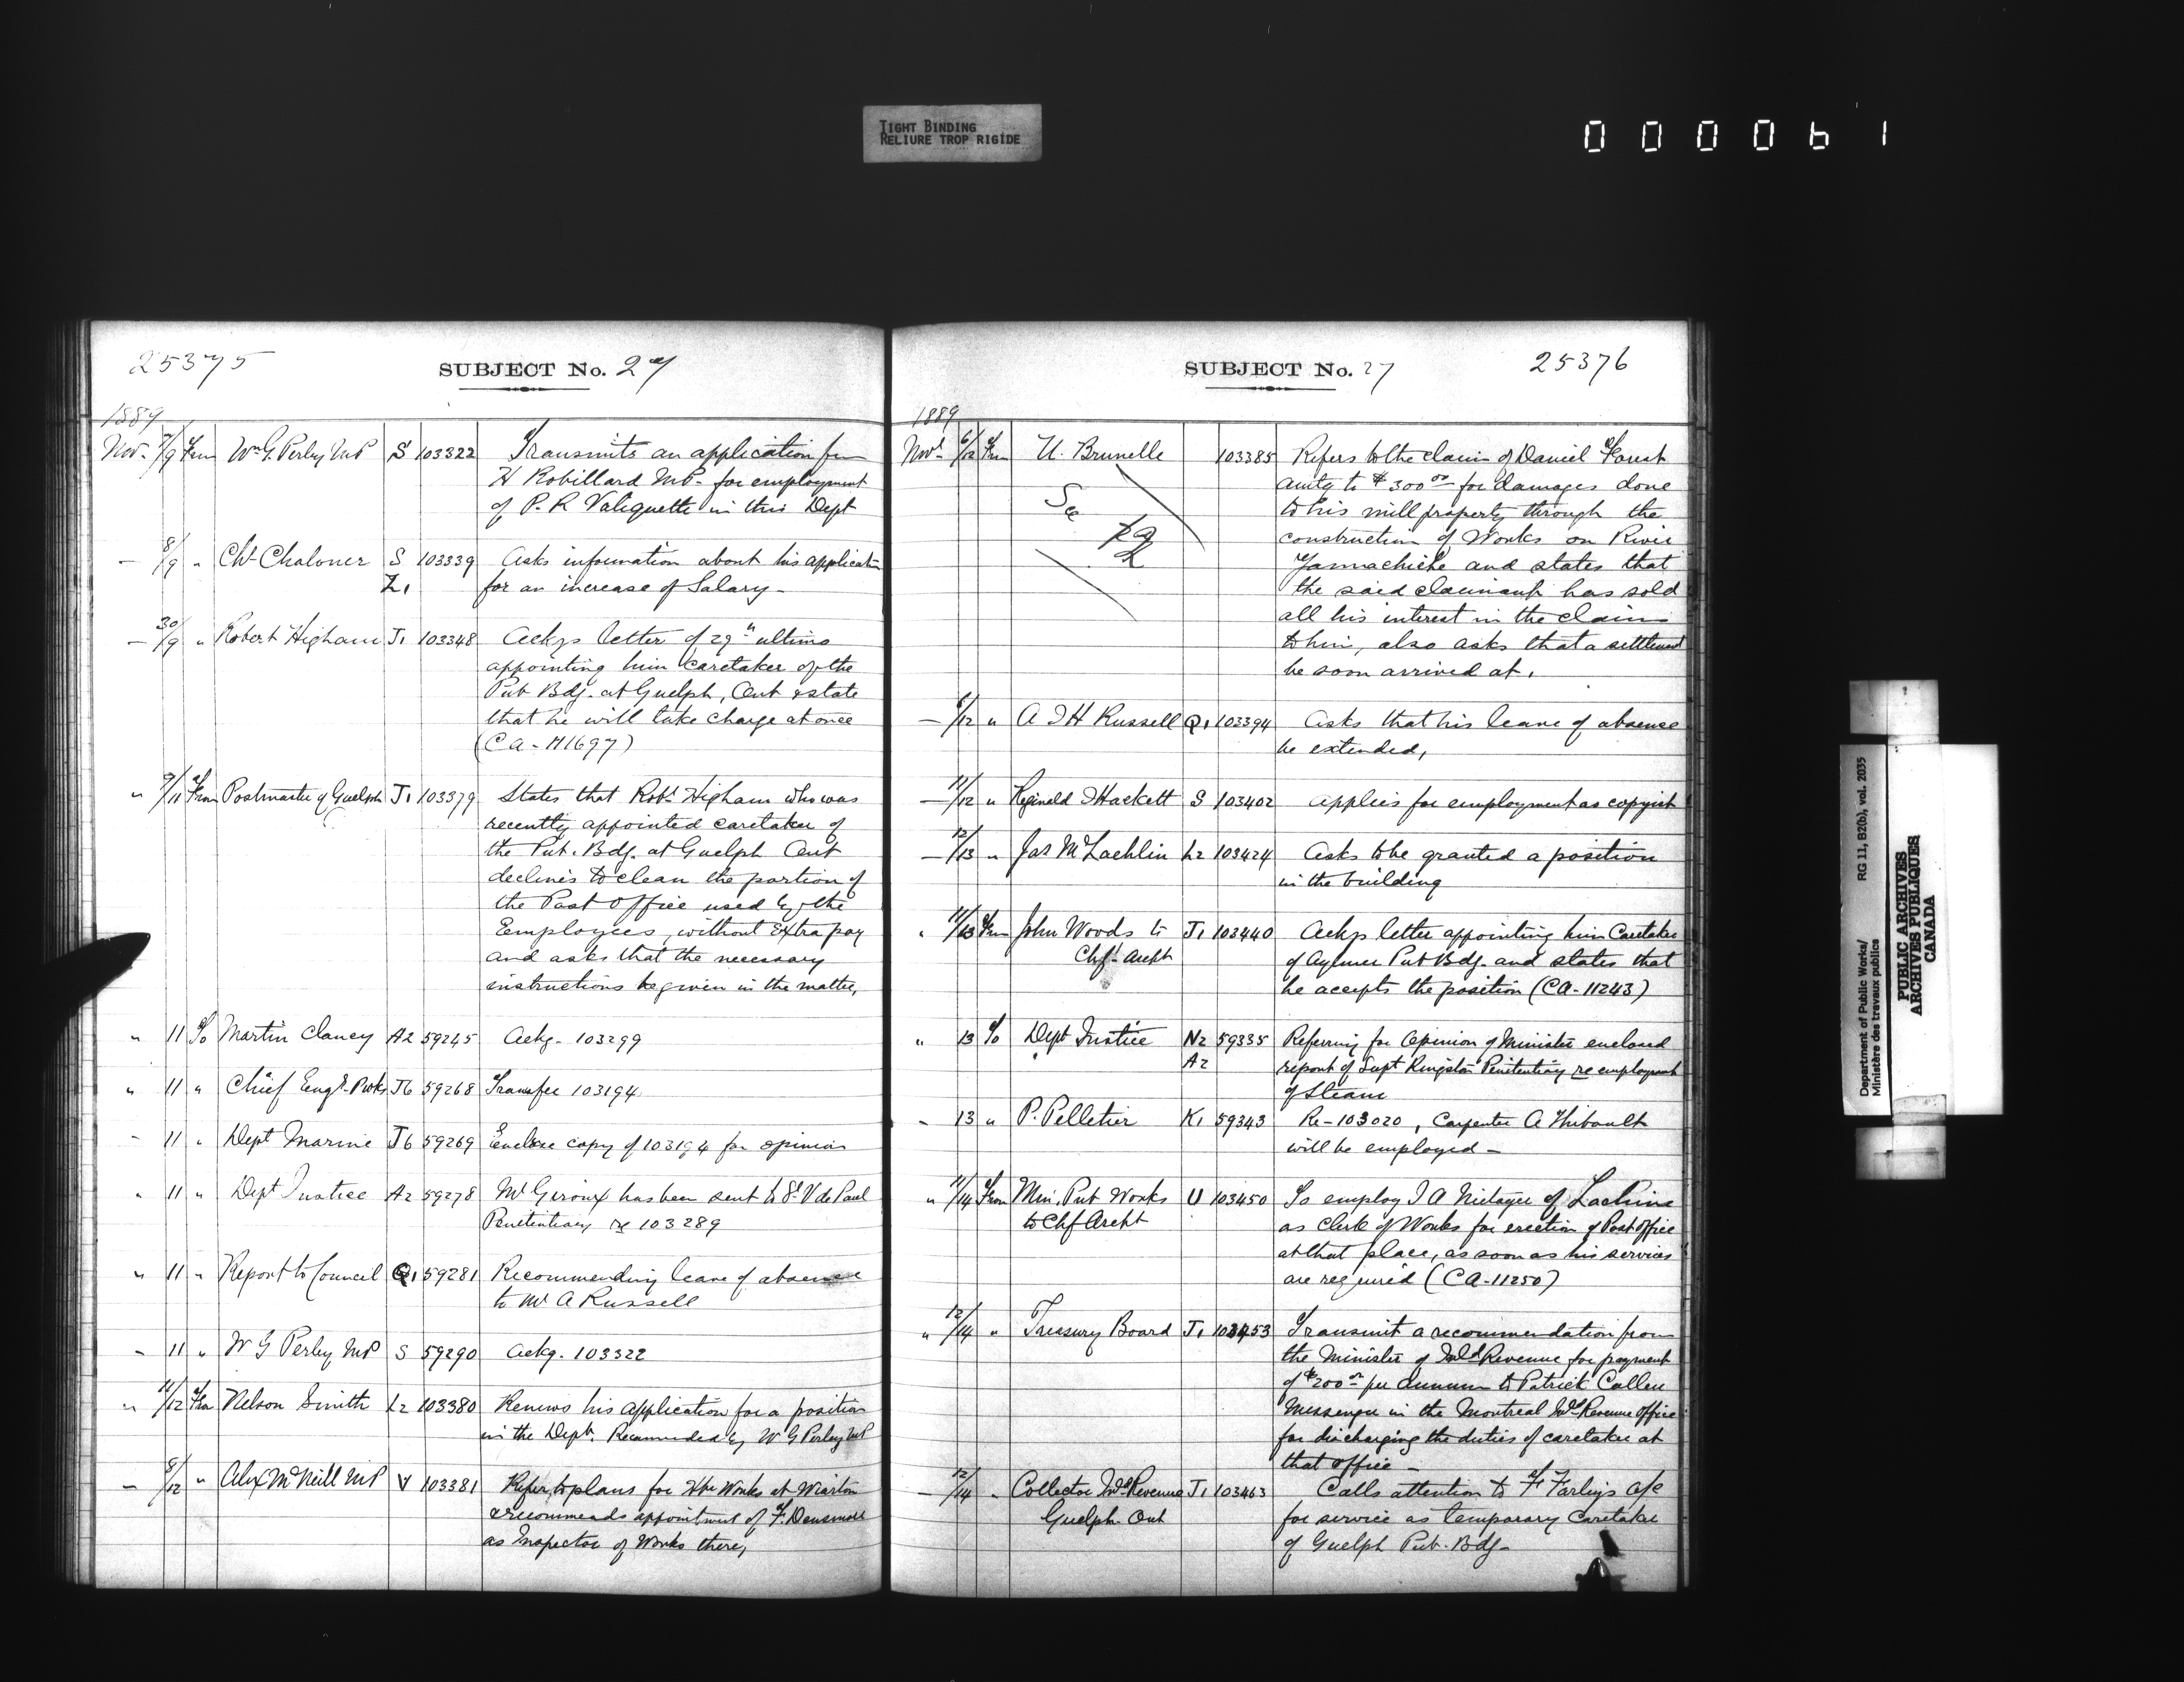 TIGHT BINDING
RELIURE TROP RIGIDE
000061
25375
SUBJECT No. 27
1889
Nov. 7/9 From Wm G. Perley MP S 103322 Transmits an application from
H Robillard MP. for employment
of P. R Valiquette in this Dept
— 8/9 " Chs Chaloner S 103339 Asks information about his application
Z1 for an increase of Salary —
— 30/9 " Robert Higham J1 103348 Ackgs letter of 29th ultimo
appointing him Caretaker of the
Pub Bdg. at Guelph, Ont & state
that he will take charge at once
(CA - 11697)
" 9/11 From Postmaster of Guelph J1 103379 States that Robt Higham who was
recently appointed caretaker of
the Pub. Bdg. at Guelph Ont
declines to clean the portion of
the Post Office used by the
Employees, without Extra pay
and asks that the necessary
instructions be given in the matter,
" 11 To Martin Clancy A2 59245 Ackg. 103299
" 11 " Chief Engr. P. Wks J6 59268 Transfer 103194
" 11 " Dept Marine J6 59269 Enclose copy of 103194 for opinion
" 11 " Dept Justice A2 59278 Mr Giroux has been sent to St V de Paul
Penitentiary re 103289
" 11 " Report to Council Q1 59281 Recommending leave of absence
to Mr A Russell
" 11 " W G Perley MP S 59290 Ackg. 103322
" 11/12 From Nelson Smith L2 103380 Renews his application for a position
in the Dept. Recommended by W G Perley MP
— 8/12 " Alex McNeill MP V 103381 Refers to plans for Hbr Works at Wiarton
& recommends appointment of F. Densmore
as Inspector of Works there,
SUBJECT No. 27
25376
1889
Novr 6/12 From U. Brunelle 103385 Refers to the claim of Daniel Forest
amtg to $300 00 for damages done
to his mill property through the
construction of Works on River
Yamachiche and states that
the said claimant has sold
all his interest in the claim
to him, also asks that a settlement
be soon arrived at.
See
— 6/12 " A J H Russell Q1 103394 Asks that his leave of absence
be extended,
— 11/12 " Reginald J Hackett S 103402 Applies for employment as copyist
— 12/13 " Jas McLachlin L2 103424 Asks to be granted a position
in the building
" 11/13 From John Woods to J1 103440 Ackgs letter appointing him Caretaker
Chf. Archt of Aylmer Pub Bdg. and states that
he accepts the position (CA - 11243)
" 13 To Dept Justice N2 59335 Referring for Opinion of Minister enclosed
A2 report of Supt Kingston Penitentiary re employment
of Steam
" 13 " P. Pelletier K1 59343 Re - 103020, Carpenter A Thibault
will be employed —
" 11/14 From Min. Pub Works U 103450 To employ J A of Lachine
to Chf Archt as Clerk of Works for erection of Post Office
at that place, as soon as his services
are required (CA - 11250)
" 12/14 " Treasury Board J1 103453 Transmit a recommendation from
the Minister of Inld Revenue for payment
of $200 00 per Annum to Patrick Cullen
Messenger in the Montreal Ind Revenue Office
for discharging the duties of caretaker at
that office —
— 12/14 " Collector Ind Revenue J1 103463 Calls attention to F Farley's a/c
Guelph Ont for service as temporary Caretaker
of Guelph Pub. Bdg —
Department of Public Works/ RG 11, B2(b), vol. 2035
Ministère des travaux publics
PUBLIC ARCHIVES
ARCHIVES PUBLIQUES
CANADA